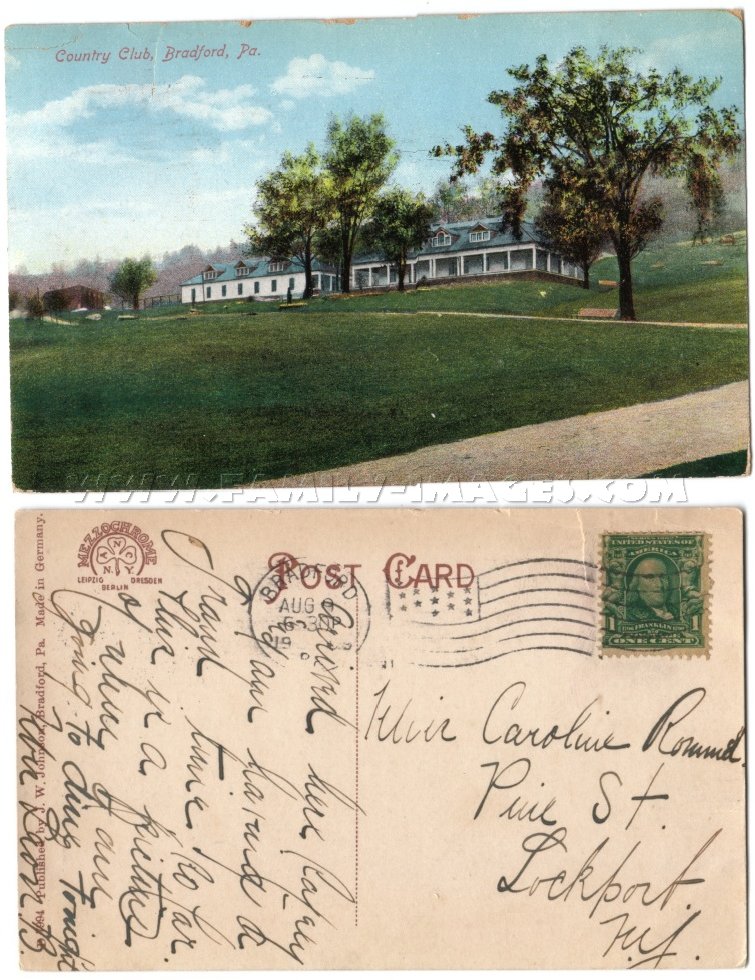 Country Club, Bradford, Pa.
WWW.FAMILY-IMAGES.COM
MEZZOCHROME
A N C
N.Y.
LEIPZIG DRESDEN
BERLIN
POST CARD
BRADFORD
AUG
6-30
19
UNITED STATES OF
AMERICA
1 FRANKLIN 1
ONE CENT
Published by J. W. Johnson, Bradford, Pa. Made in Germany.
Arrived here safely
& am having a
Grand time so far.
This is a picture
of where I am
going to dine tonight
Miss Caroline Rommel.
Pine St.
Lockport.
N.Y.